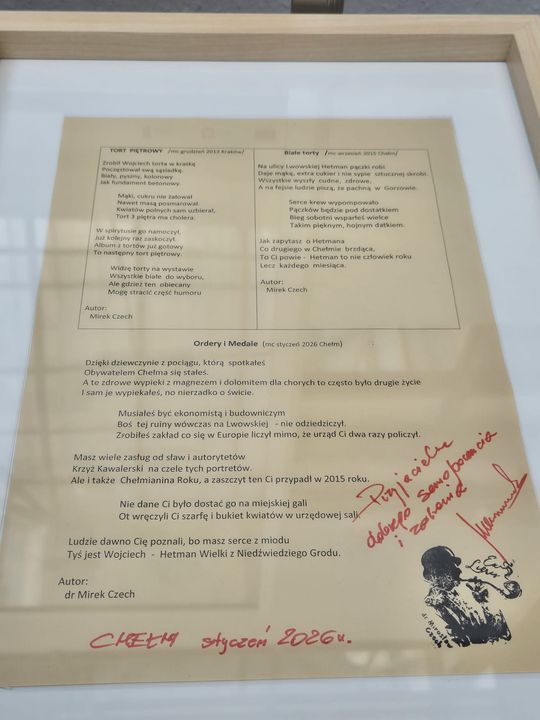 TORT PIĘTROWY /mc grudzień 2013 Kraków/
Zrobił Wojciech torta w kratkę
Poczęstował swą sąsiadkę.
Biały, pyszny, kolorowy
Jak fundament betonowy.
Mąki, cukru nie żałował
Nawet masą posmarował.
Kwiatów polnych sam uzbierał,
Tort 3 piętra ma cholera.
W spirytusie go namoczył,
Już kolejny raz zaskoczył.
Album z tortów już gotowy
To następny tort piętrowy.
Widzę torty na wystawie
Wszystkie białe do wyboru,
Ale gdzież ten obiecany
Mogę stracić część humoru
Autor:
Mirek Czech
Białe torty /mc wrzesień 2015 Chełm/
Na ulicy Lwowskiej Hetman pączki robi
Daje mąkę, extra cukier i nie sypie sztucznej skrobi.
Wszystkie wyszły cudne, zdrowe,
A na fejsie ludzie piszą, że pachną w Gorzowie.
Serce krew wypompowało
Pączków będzie pod dostatkiem
Bieg sobotni wsparłeś wielce
Takim pięknym, hojnym datkiem.
Jak zapytasz o Hetmana
Co drugiego w Chełmie brzdąca,
To Ci powie - Hetman to nie człowiek roku
Lecz każdego miesiąca.
Autor:
Mirek Czech
Ordery i Medale (mc styczeń 2026 Chełm)
Dzięki dziewczynie z pociągu, którą spotkałeś
Obywatelem Chełma się stałeś.
A te zdrowe wypieki z magnezem i dolomitem dla chorych to często było drugie życie
I sam je wypiekałeś, no nierzadko o świcie.
Musiałeś być ekonomistą i budowniczym
Boś tej ruiny wówczas na Lwowskiej - nie odziedziczył.
Zrobiłeś zakład co się w Europie liczył mimo, że urząd Ci dwa razy policzył.
Masz wiele zasług od sław i autorytetów
Krzyż Kawalerski na czele tych portretów.
Ale i także Chełmianina Roku, a zaszczyt ten Ci przypadł w 2015 roku.
Nie dane Ci było dostać go na miejskiej gali
Ot wręczyli Ci szarfę i bukiet kwiatów w urzędowej sali.
Ludzie dawno Cię poznali, bo masz serce z miodu
Tyś jest Wojciech - Hetman Wielki z Niedźwiedziego Grodu.
Autor:
dr Mirek Czech
Przyjacielu
dobrego samopoczucia
i zdrowia
Ex Libris
dr Mirosław Czech
CHEŁM styczeń 2026 r.